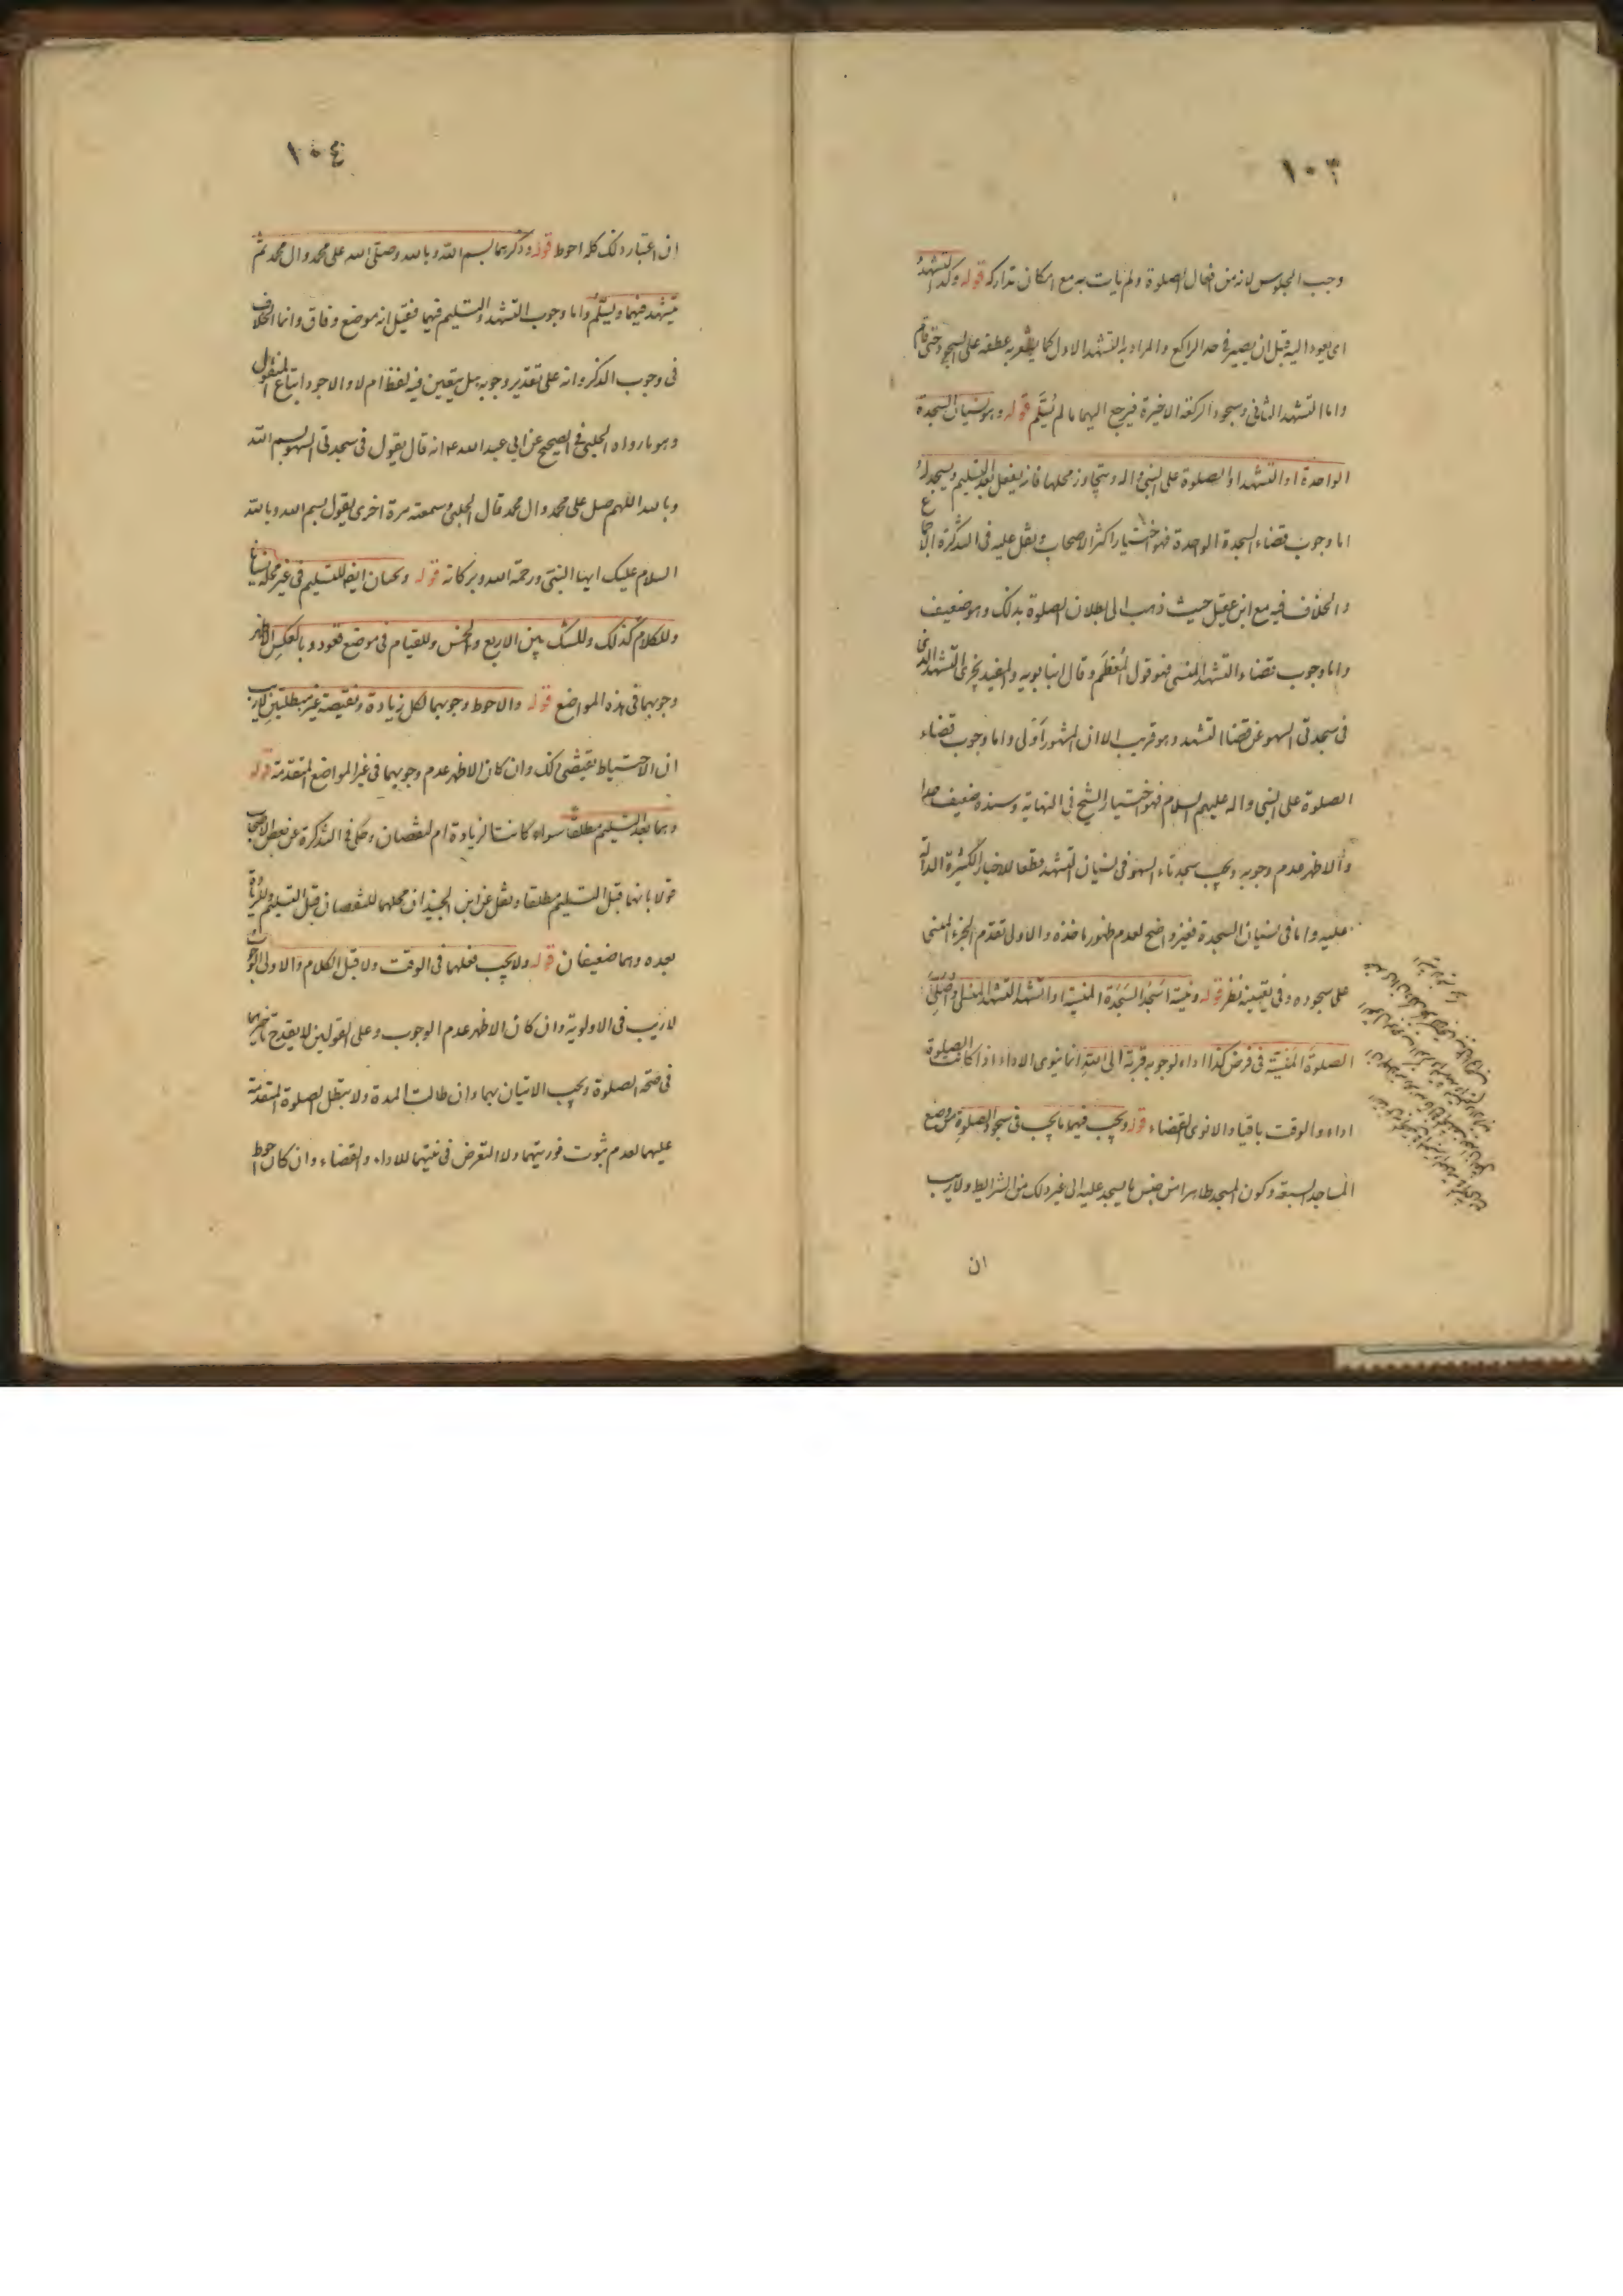 ١٠٣
وجب الجلوس لانه من افعال الصلوة ولم يات به مع امكان تداركه قوله وكذا التشهد
اى يعود اليه قبل ان يصير فى حد الراكع والمراد به التشهد الاول كما يشعر به عطفه على السجود حتى قام
واما التشهد الثانى وسجود الركعة الاخيرة فيرجع اليهما ما لم يسلم قوله وهو نسيان السجدة
الواحدة او التشهد او الصلوة على النبى واله ويتجاوز محلها فانه يفعل بعد التسليم ويسجد له
اما وجوب قضاء السجدة الواحدة فهو اختيار اكثر الاصحاب ونقل عليه فى التذكرة الاجماع
والخلاف فيه مع ابن عقيل حيث ذهب الى بطلان الصلوة بذلك وهو ضعيف
واما وجوب قضاء التشهد المنسى فهو قول المعظم وقال ابنا بويه والمفيد يجزى التشهد الذى
فى سجدتى السهو عن قضا التشهد وهو قريب الا ان المشهور اولى واما وجوب قضاء
الصلوة على النبى واله عليهم السلام فهو اختيار الشيخ فى النهاية وسنده ضعيف جدا
والاظهر عدم وجوبه ويجب سجدتاء السهو فى نسيان التشهد قطعا للاخبار الكثيرة الدالة
عليه واما فى نسيان السجدة فغير واضح لعدم ظهور ماخذه والاولى تقدم الجزء المنسى
على سجوده وفى تعيينه نظر قوله ونيته اسجد السجدة المنسية او اتشهد التشهد المنسى او اصلى
الصلوة المنسية فى فرض كذا اداء لوجوبه قربة الى الله انما ينوى الاداء اذا كانت الصلوة
اداء والوقت باقيا والا نوى القضاء قوله ويجب فيهما ما يجب فى سجود الصلوة من وضع
المساجد السبعة وكون المسجد طاهرا من جنس ما يسجد عليه الى غير ذلك من الشرايط ولا ريب
ان
١٠٤
ان اعتبار ذلك كله احوط قوله وذكرهما بسم الله وبالله وصلى الله على محمد وال محمد ثم
يتشهد فيهما ويسلم واما وجوب التشهد والتسليم فيهما فقيل انه موضع وفاق وانما الخلاف
فى وجوب الذكر وانه على تقدير وجوبه هل يتعين فيه لفظ ام لا والاجود اتباع المنقول
وهو ما رواه الحلبى فى الصحيح عن ابى عبد الله ع انه قال يقول فى سجدتى السهو بسم الله
وبالله اللهم صل على محمد وال محمد قال الحلبى وسمعته مرة اخرى يقول بسم الله وبالله
السلام عليك ايها النبى ورحمة الله وبركاته قوله ويجبان ايضا للتسليم فى غير محله نسيانا
وللكلام كذلك وللشك بين الاربع والخمس وللقيام فى موضع قعود وبالعكس الاظهر
وجوبهما فى هذه المواضع قوله والاحوط وجوبهما لكل زيادة ونقيصة غير مبطلتين لا ريب
ان الاحتياط يقتضى ذلك وان كان الاظهر عدم وجوبهما فى غير المواضع المتقدمة قوله
وهما بعد التسليم مطلقا سواء كانتا لزيادة ام لنقصان وحكى فى التذكرة عن بعض الاصحاب
قولا بانهما قبل التسليم مطلقا ونقل عن ابن الجنيد ان محلهما للنقصان قبل التسليم وللزيادة
بعده وهما ضعيفان قوله ولا يجب فعلهما فى الوقت ولا قبل الكلام والاولى الوجوب
لا ريب فى الاولوية وان كان الاظهر عدم الوجوب وعلى القولين لا يقدح تاخيرهما
فى صحة الصلوة ويجب الاتيان بهما وان طالت المدة ولا تبطل الصلوة المتقدمة
عليهما لعدم ثبوت فوريتهما ولا التعرض فى نيتهما للاداء والقضاء وان كان احوط